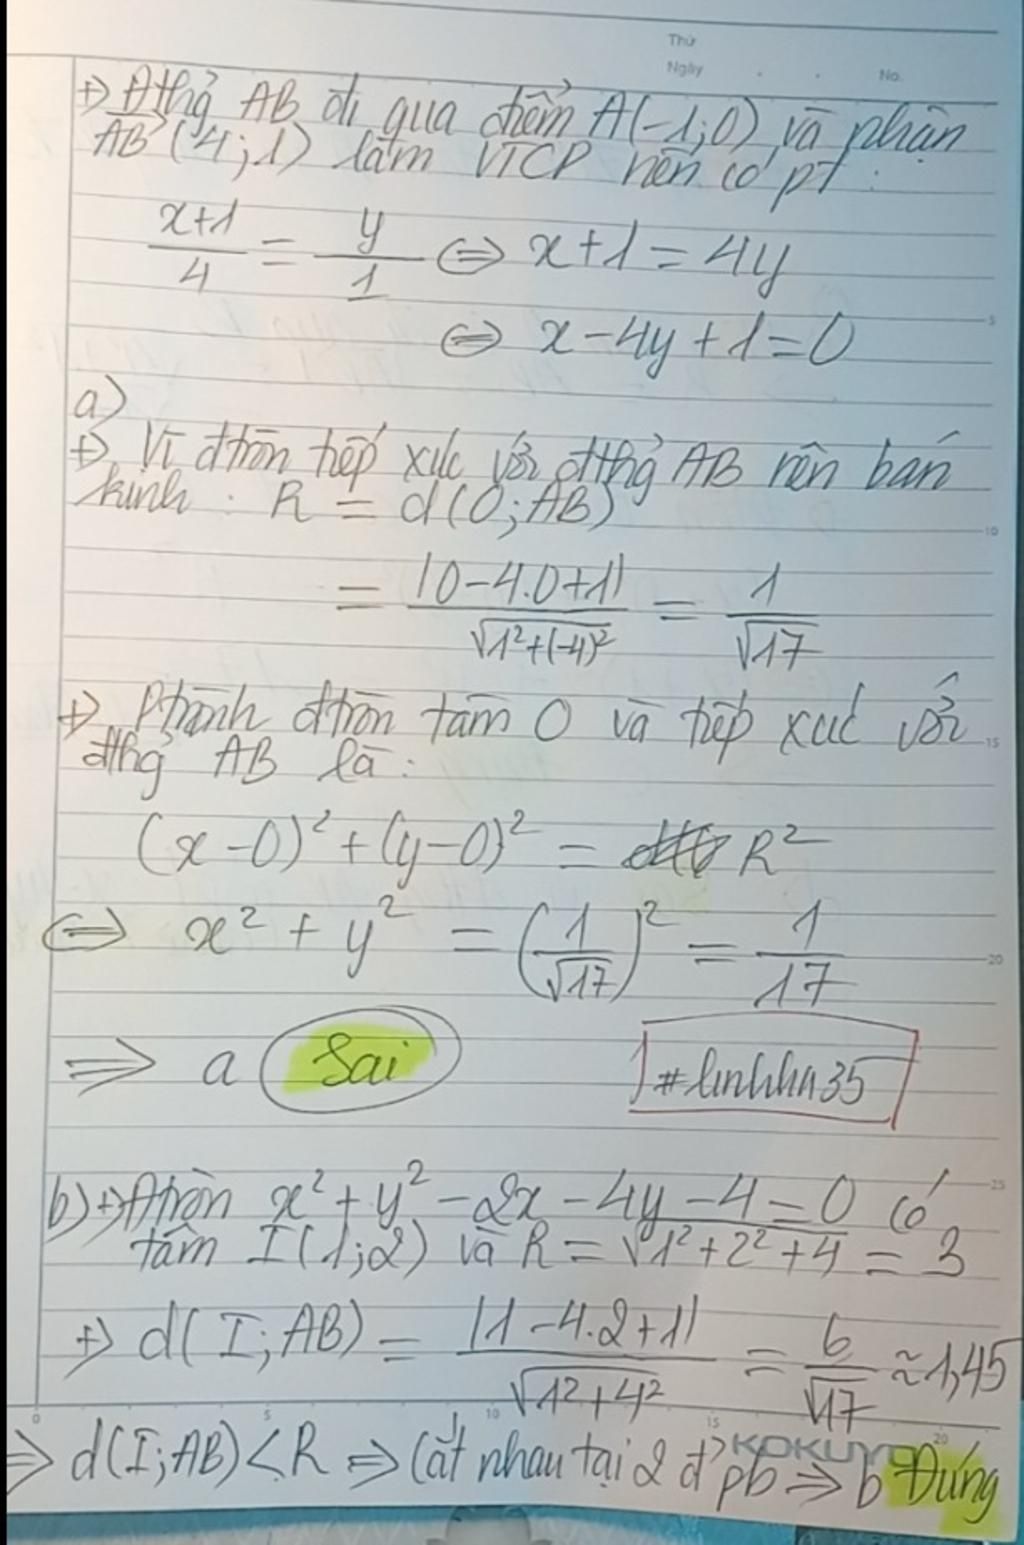 Thứ
Ngày . . No.
+) Đthg AB đi qua điểm A(-1;0) và nhận
AB (4;1) làm VTCP nên có pt :
x+1/4 = y/1 ⇔ x+1=4y
⇔ x-4y+1=0
a)
+) Vì đtròn tiếp xúc với đthg AB nên bán
kính : R = d(O;AB)
= |0-4.0+1|/√1²+(-4)² = 1/√17
+) Ptrình đtròn tâm O và tiếp xúc với
đthg AB là :
(x-0)² + (y-0)² = R²
⇔ x² + y² = (1/√17)² = 1/17
⇒ a Sai
#linhha35
b) +) Đtròn x² + y² - 2x - 4y - 4 = 0 có
tâm I(1;2) và R = √1²+2²+4 = 3
+) d(I;AB) = |1-4.2+1|/√1²+4² = 6/√17 ≈ 1,45
⇒ d(I;AB) < R ⇒ Cắt nhau tại 2 đ' pb ⇒ b Đúng
0 5 10 15 20
KOKUYO
5
10
15
20
25